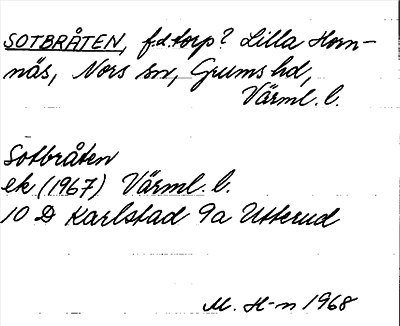 SOTBRÅTEN, f.d.torp? Lilla Horn-
näs, Nors sn, Grums hd,
Värml. l.
Sotbråten
ek (1967) Värml. l.
10 D Karlstad 9a Utterud
M. H-n 1968